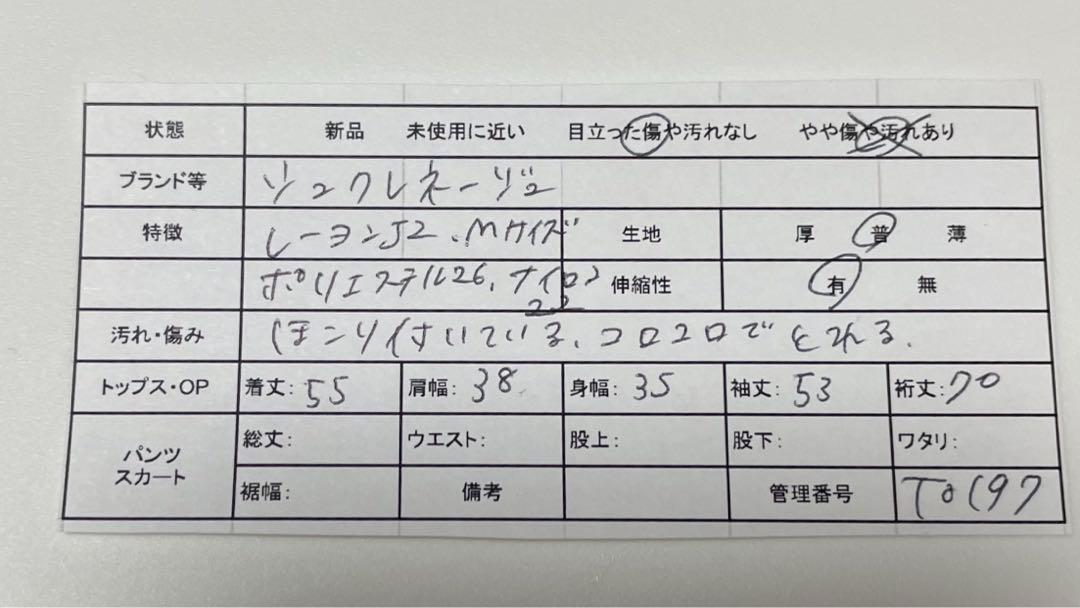 状態 新品 未使用に近い 目立った傷や汚れなし やや傷や汚れあり
ブランド等 ソュクレネージュ
特徴 レーヨン52、Mサイズ 生地 厚 普 薄
ポリエステル26、ナイロン 伸縮性 有 無
22
汚れ・傷み ほこり付いている、コロコロでとれる.
トップス・OP 着丈:55 肩幅:38 身幅:35 袖丈:53 裄丈:70
パンツ スカート 総丈: ウエスト: 股上: 股下: ワタリ:
裾幅: 備考 管理番号